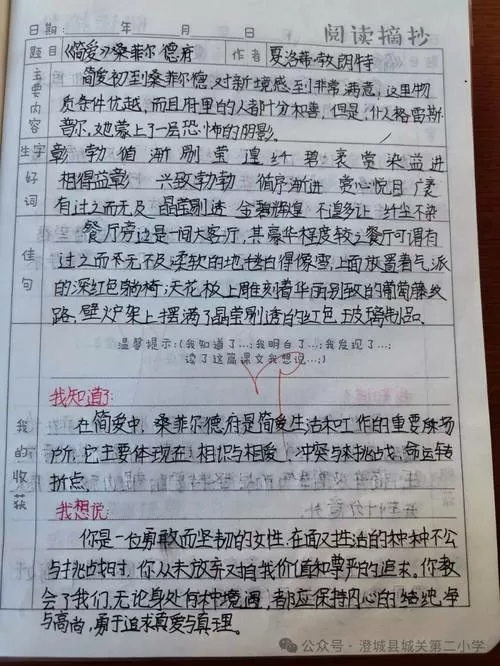 阅读摘抄
日期: 年 月 日
题目 《简爱》桑菲尔德府 作者 夏洛蒂·勃朗特
主要内容
简爱初到桑菲尔德,对新境感到非常满意,这里物
质条件优越,而且府里的人都十分和善,但是,仆人格雷斯·
普尔,她蒙上了一层恐怖的阴影。
生字 彰 勃 循 渐 剔 莹 煌 纤 碧 袤 赏 染 益 进
好词
相得益彰 兴致勃勃 循序渐进 赏心悦目 广袤
有过之而无及 晶莹剔透 金碧辉煌 不遑多让 纤尘不染
佳句
餐厅旁边是一间大客厅,其豪华程度较之餐厅可谓有
过之而不无不及柔软的地毯白得像雪,上面放置着气派
的深红色躺椅;天花板上雕刻着华丽别致的葡萄藤纹
路,壁火炉架上摆满了晶莹剔透的红色玻璃制品。
温馨提示:(我知道了…;我明白了…;我发现了…;
读了这篇课文我想说…;)
我的收获
我知道了:
在简爱中,桑菲尔德府是简爱生活和工作的重要场
所,它主要体现在 相识与相爱,冲突与挑战,命运转
折点
我想说:
你是一位勇敢而坚韧的女性,在面对生活的种种不公
与挑战时,你从未放弃对自我价值和尊严的追求。你教
会了我们,无论身处何种境遇,都应保持内心的纯净
与高尚,勇于追求真爱与真理。
公众号·澄城县城关第二小学